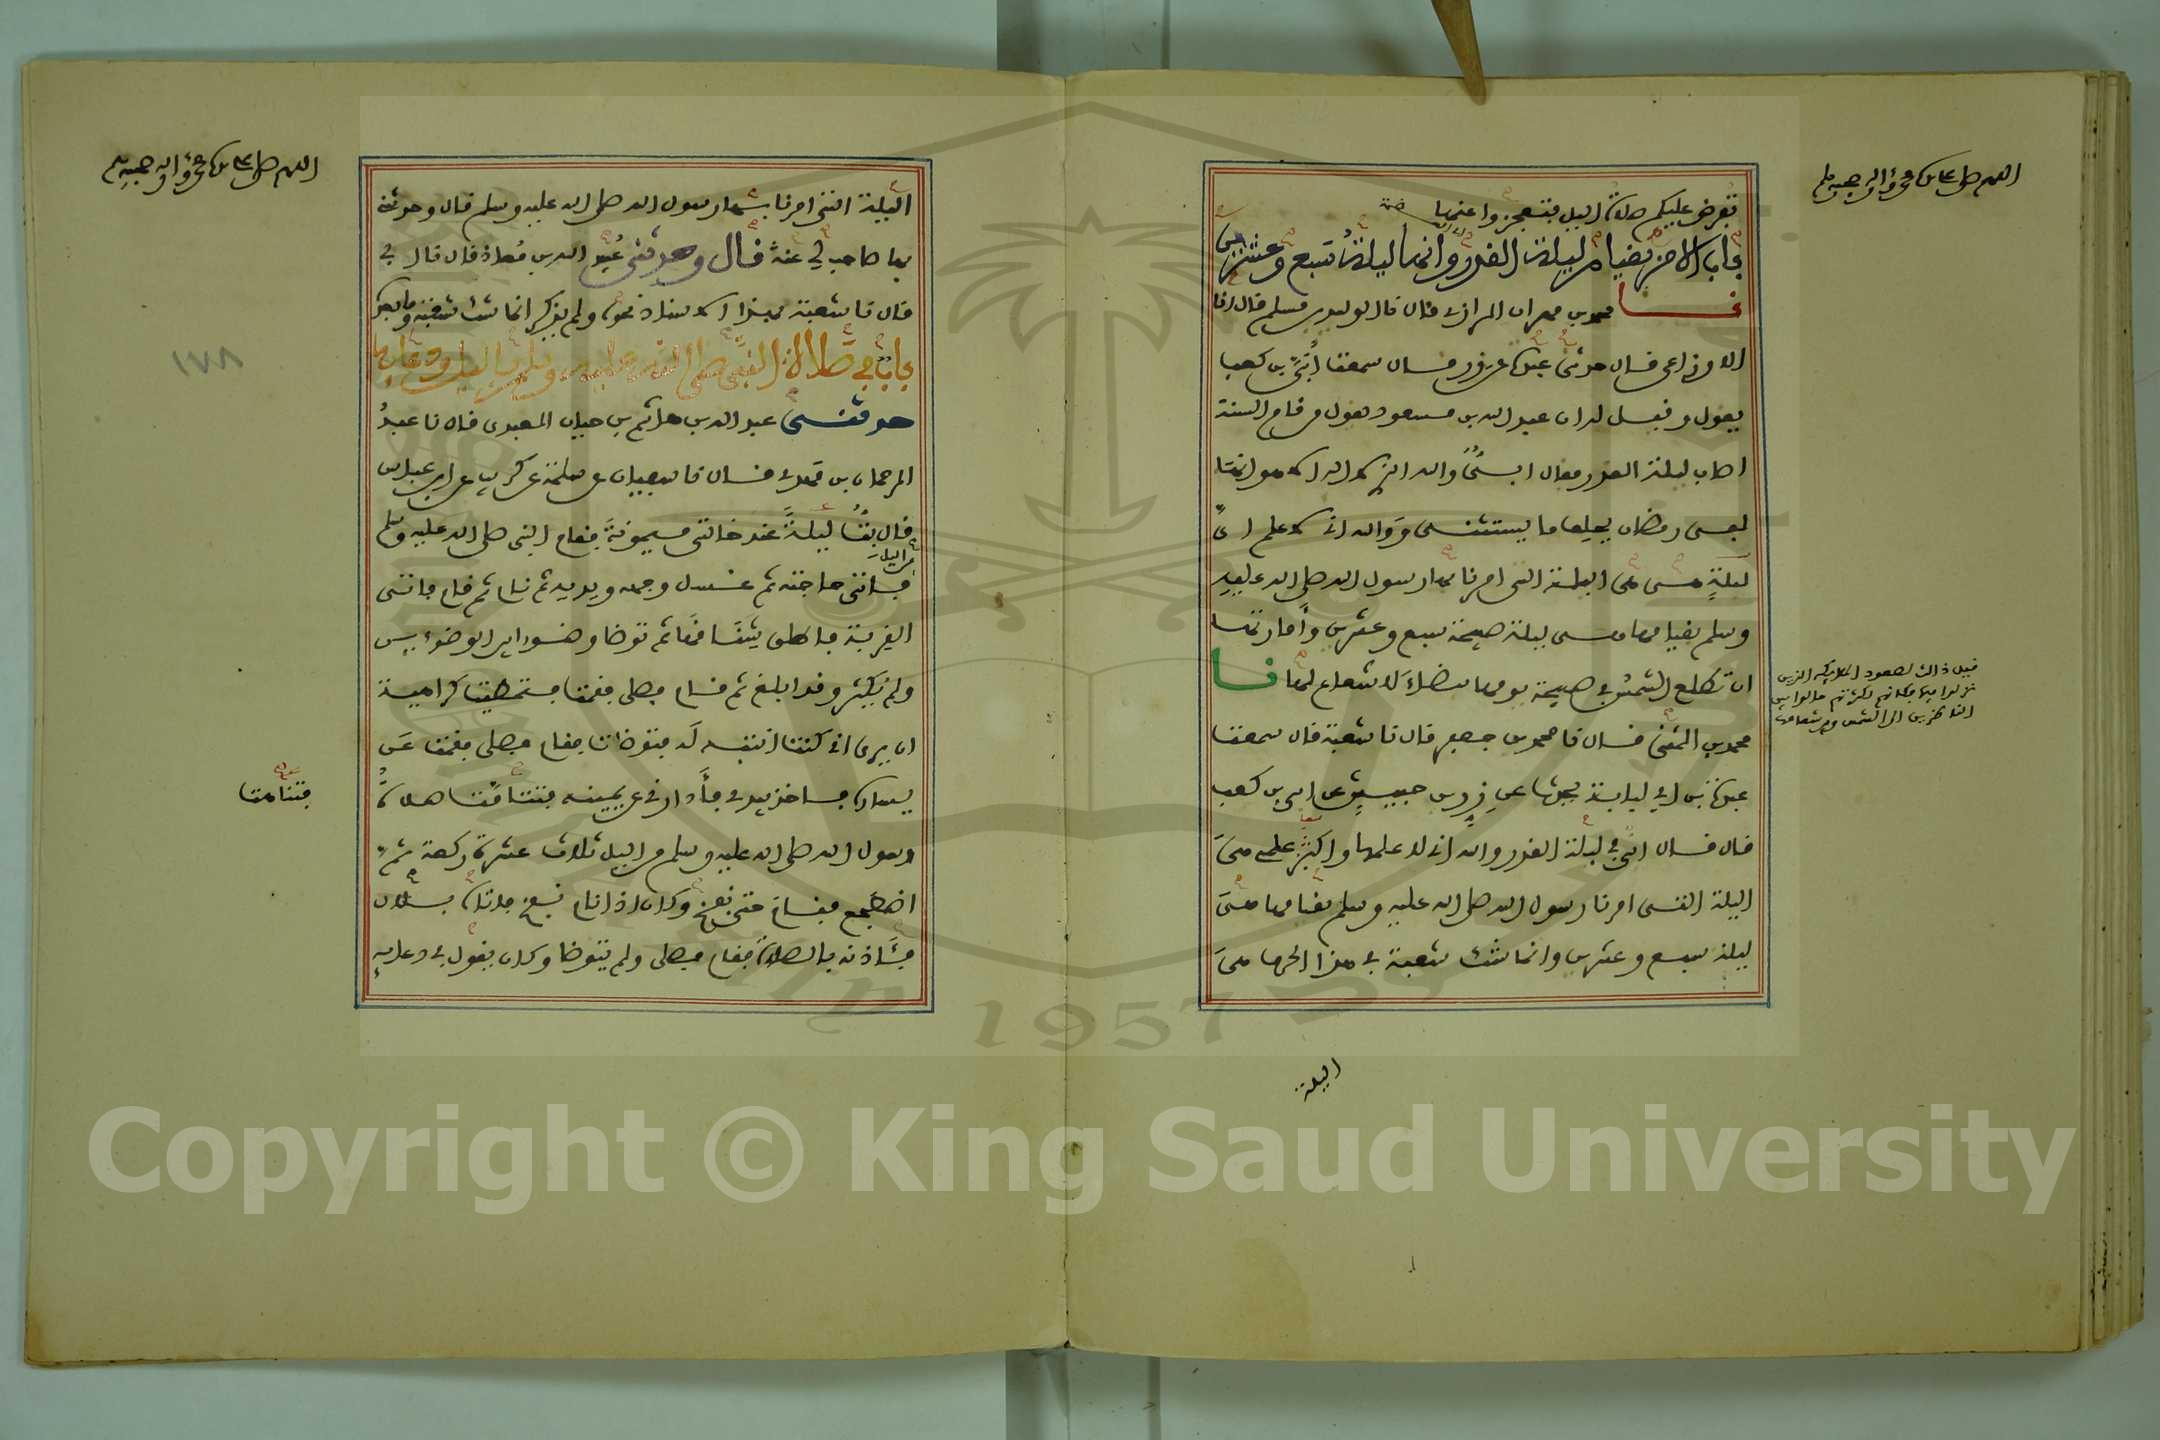 اللهم صل على سيدنا محمد وآله وصحبه وسلم
تفرض عليكم صلاة الليل فتعجزوا عنها
باب الامر بقيام ليلة القدر وانها ليلة سبع وعشرين
نا محمد بن مهران الرازي قال نا الوليد بن مسلم قال نا
الاوزاعي قال حدثني عبدة عن زر قال سمعت أبي بن كعب
يقول وقيل له ان عبد الله بن مسعود يقول من قام السنة
اصاب ليلة القدر فقال ابي والله الذي لا اله الا هو انها
لفي رمضان يحلف ما يستثني ووالله اني لاعلم اي
ليلة هي هي الليلة التي امرنا بها رسول الله صلى الله عليه
وسلم بقيامها هي ليلة صبيحة سبع وعشرين وأمارتها
ان تطلع الشمس في صبيحة يومها بيضاء لا شعاع لها نا
محمد بن المثنى قال نا محمد بن جعفر قال نا شعبة قال سمعت
عبدة بن ابي لبابة يحدث عن زر بن حبيش عن ابي بن كعب
قال قال ابي في ليلة القدر والله اني لاعلمها واكثر علمي هي
الليلة التي امرنا رسول الله صلى الله عليه وسلم بقيامها هي
ليلة سبع وعشرين وانما شك شعبة في هذا الحرف هي
قيل ذالك لصعود الملائكة الذين
الناظرين الى الشمس وشعاعها
الليلة
اللهم صل على سيدنا محمد وآله وصحبه وسلم
١٧٨
الليلة التي امرنا بها رسول الله صلى الله عليه وسلم قال وحدثني
بها صاحب لي عنه قال وحدثني عبيد الله بن معاذ قال نا ابي
قال نا شعبة بهذا الاسناد نحوه ولم يذكر انما شك شعبة وما بعده
باب في صلاة النبي صلى الله عليه وسلم بالليل ودعائه
حدثني عبد الله بن هاشم بن حيان العبدي قال نا عبد
الرحمان بن مهدي قال نا سفيان عن سلمة عن كريب عن ابن عباس
قال بت ليلة عند خالتي ميمونة فقام النبي صلى الله عليه وسلم
من الليل
فاتى حاجته ثم غسل وجهه ويديه ثم نام ثم قام فاتى
القربة فاطلق شناقها ثم توضا وضوءا بين الوضوءين
ولم يكثر وقد ابلغ ثم قام فصلى فقمت فتمطيت كراهية
ان يرى اني كنت انتبه له فتوضات فقام فصلى فقمت عن
يساره فاخذ بيدي فأدارني عن يمينه فتتامت صلاة
فتتامت
رسول الله صلى الله عليه وسلم من الليل ثلاث عشرة ركعة ثم
اضطجع فنام حتى نفخ وكان اذا نام نفخ فاتاه بلال
فآذنه بالصلاة فقام فصلى ولم يتوضا وكان يقول في دعائه
1957
Copyright © King Saud University